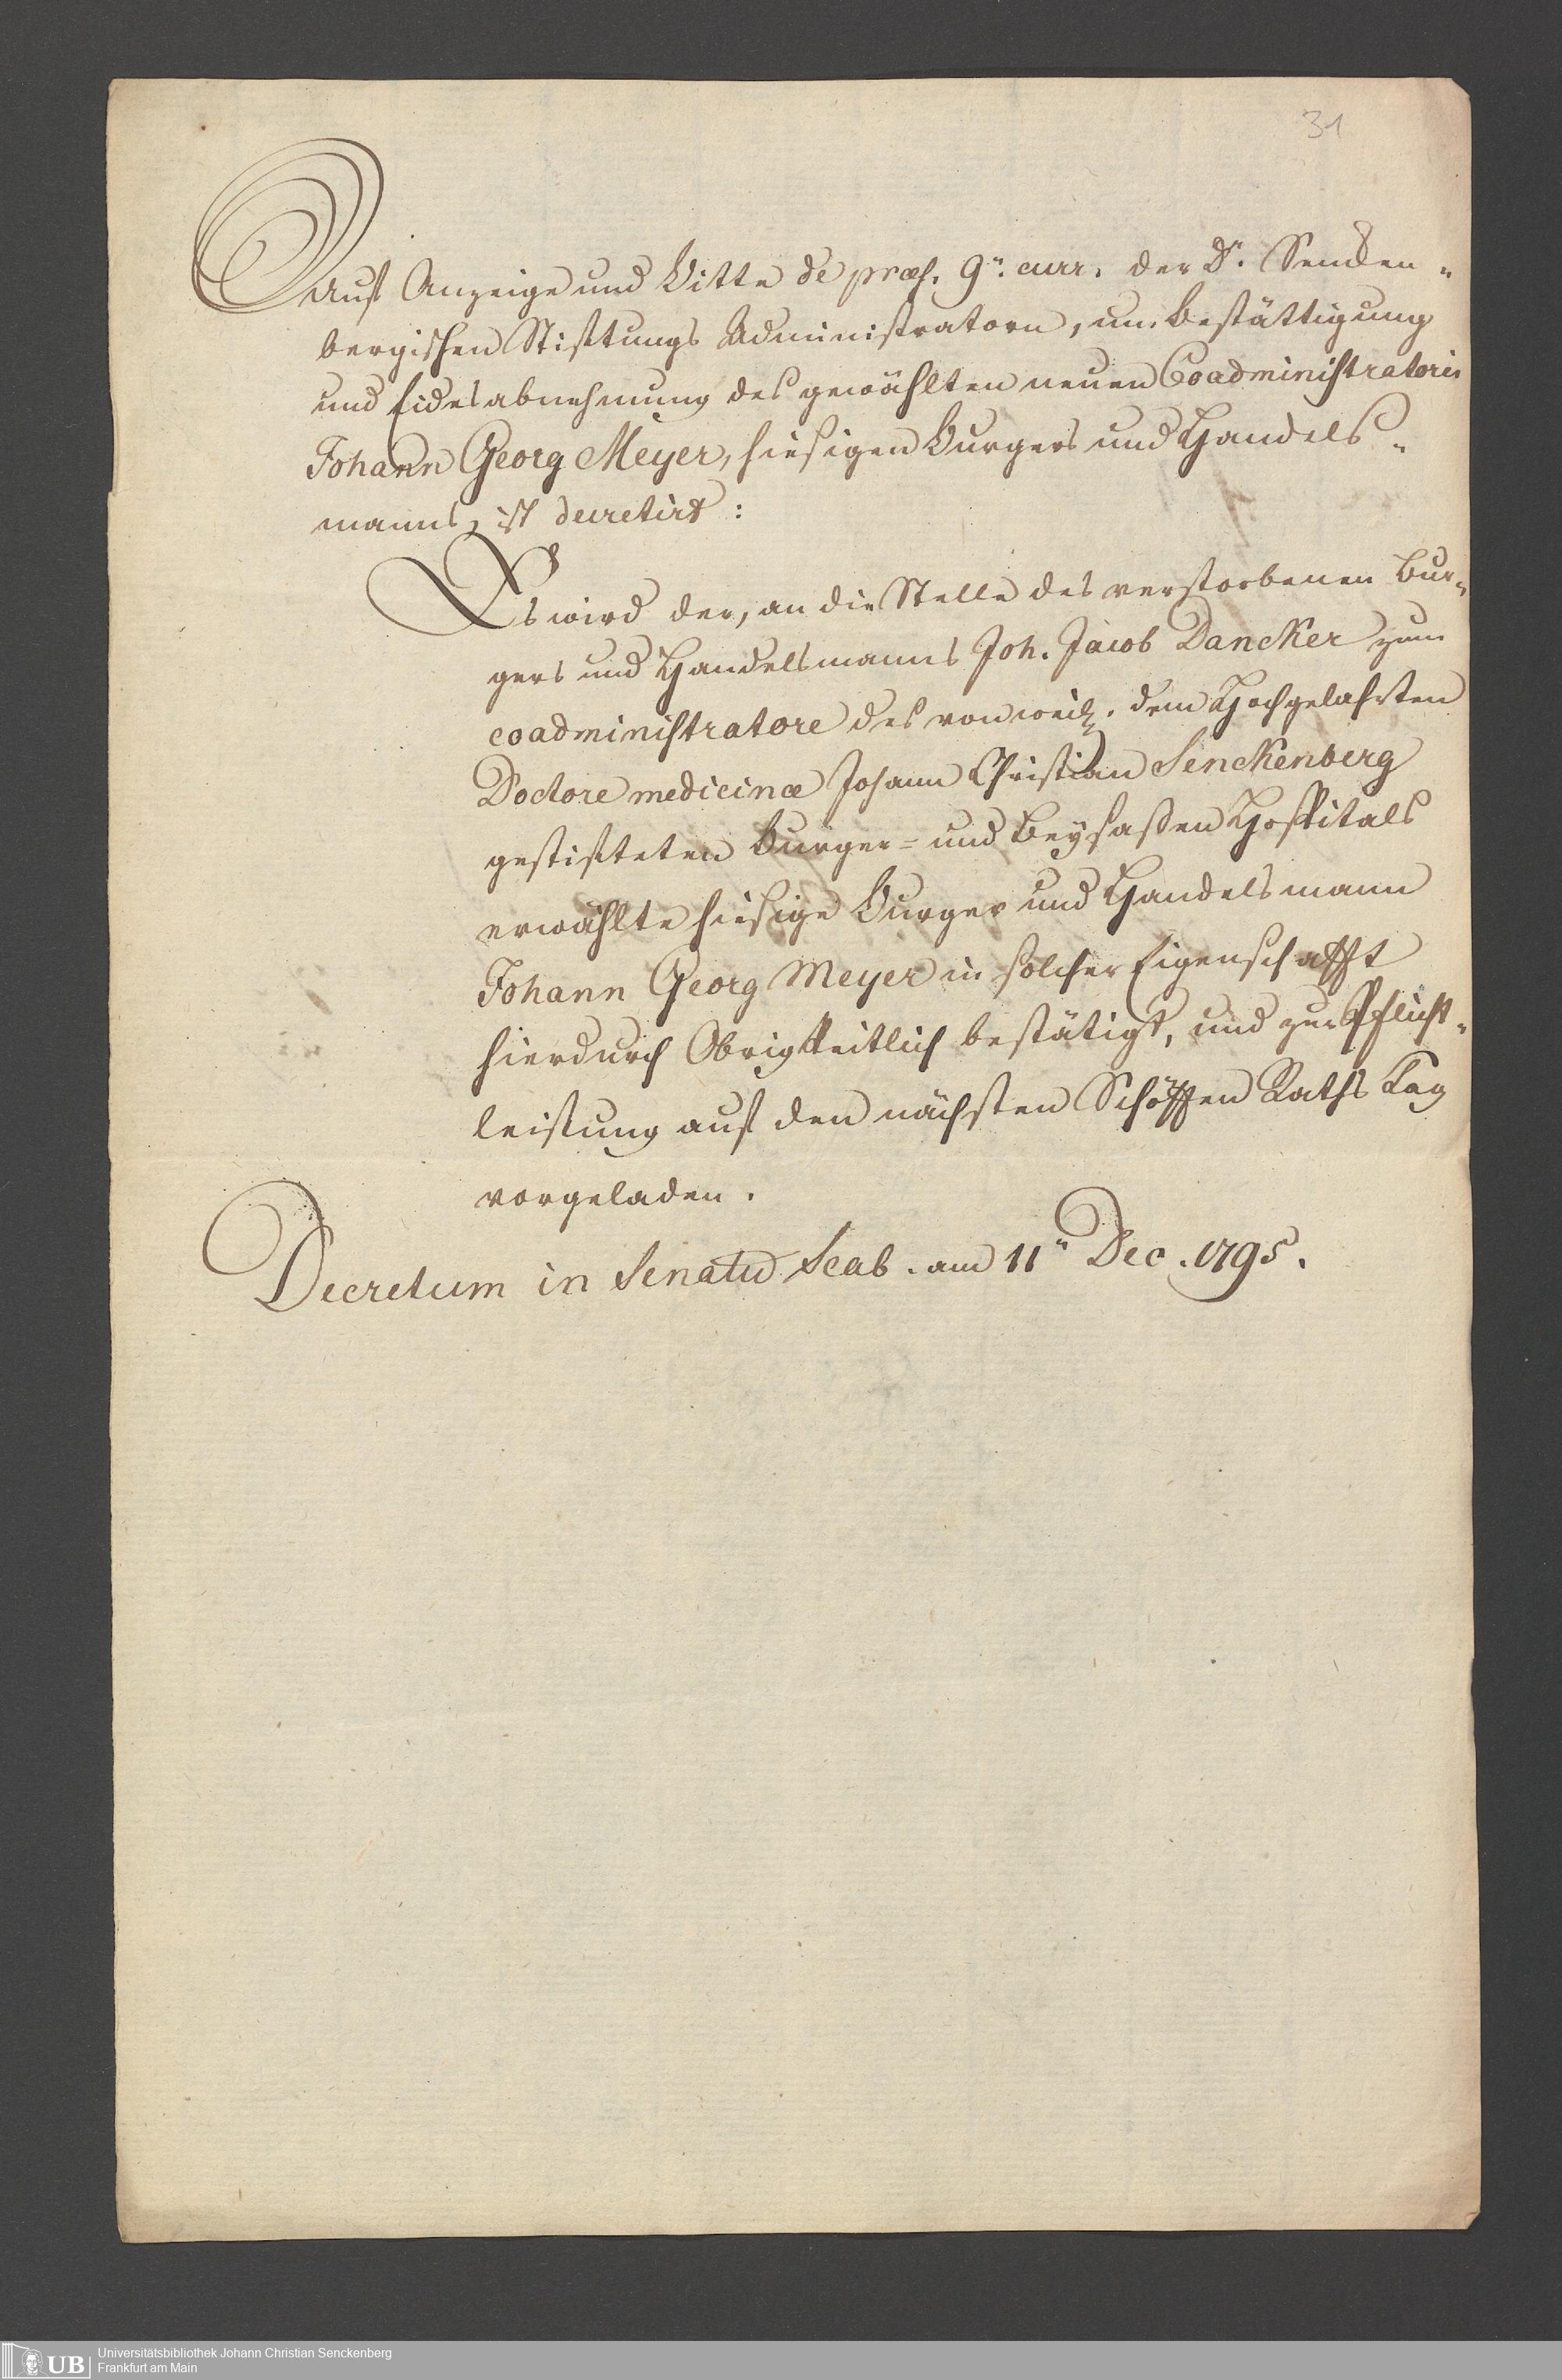 31
Auf Anzeige und Bitte de præs. 9ᵗ. curr. der Dr. Senckenbergischen
bergischen Stiftungs Administratorn, um Bestättigung
und Eidesabnehmung des gewählten neuen Coadministratoris
Johann Georg Meyer, hiesigen Burgers und Handels-
manns, ist decretirt:
Es wird der, an die Stelle des verstorbenen Bur-
gers und Handelsmanns Joh. Jacob Dancker zum
coadministratore des von weil. dem Hochgelahrten
Doctore medicinæ Johann Christian Senckenberg
gestifteten Burger- und Beysaßen Hospitals
erwählte hiesige Burger und Handelsmann
Johann Georg Meyer in solcher Eigenschafft
hierdurch Obrigkeitlich bestätigt, und zur Pflicht-
leistung auf den nächsten Schöffen Raths Tag
vorgeladen.
Decretum in Senatu Scab. am 11ⁿ Dec. 1795.
UB
Universitätsbibliothek Johann Christian Senckenberg
Frankfurt am Main